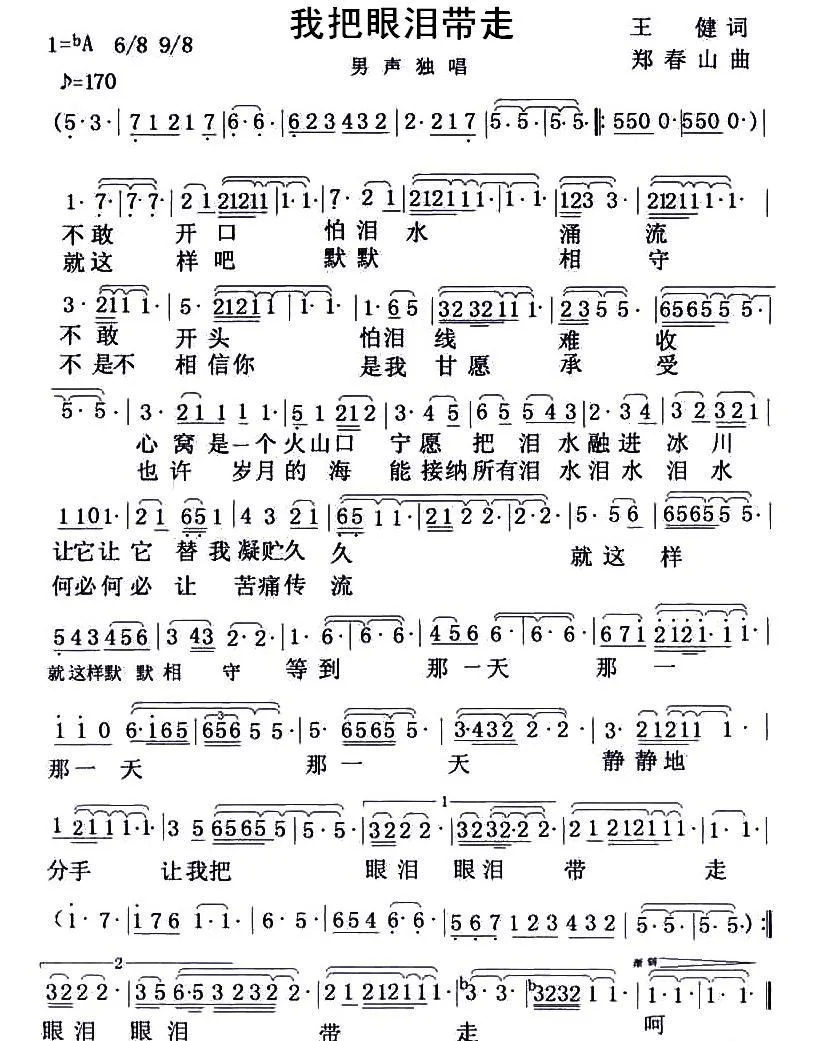 我把眼泪带走
王 健词
1=bA 6/8 9/8
男声独唱
郑春山曲
♪=170
(5·3·|71217|6·6·|623432|2·217|5·5·|5·5·‖:5500·|5500·)|
1·7·|7·7·|21 21211|1·1·|7·21|212111·|1·1·|1233·|2121111·|
不敢 开口 怕泪水 涌流
就这 样吧 默默 相守
3·2111·|5·21211|1·1·|1·65|3232111·|2355·|656555·|
不敢 开头 怕泪线 难收
不是不 相信你 是我 甘愿 承受
5·5·|3·2111 1·|51212|3·45|65543|2·34|32321|
心窝是一个火山口 宁愿 把泪水融进 冰川
也许 岁月的 海 能接纳所有泪 水泪水 泪水
1101·|2165|4321|6511·|2122·|2·2·|5·56|656555·|
让它让它 替我凝贮久久 就这样
何必何必 让 苦痛传流
543456|3432·2·|1·6·|6·6·|4566·|6·6·|671|2121·11·|
就这样默 默相 守 等到 那一天 那一
110 6·165|65655·|5·65655·|3·4322·2·|3·212111·|
那一天 那一 天 静静地
1 21111·1·|35656555|5·5·|32222·|3232·22·|212121111·|1·1·|
1
分手 让我把 眼泪 眼泪 带 走
(1·7·|1761·1·|6·5·|6546·6·|567123432|5·5·|5·5·):‖
2
渐弱
3222·|356·53232 2·|2121211 1·|b3·3·|b32321 1·|1·1·|1·1·‖
眼泪 眼泪 带 走 呵